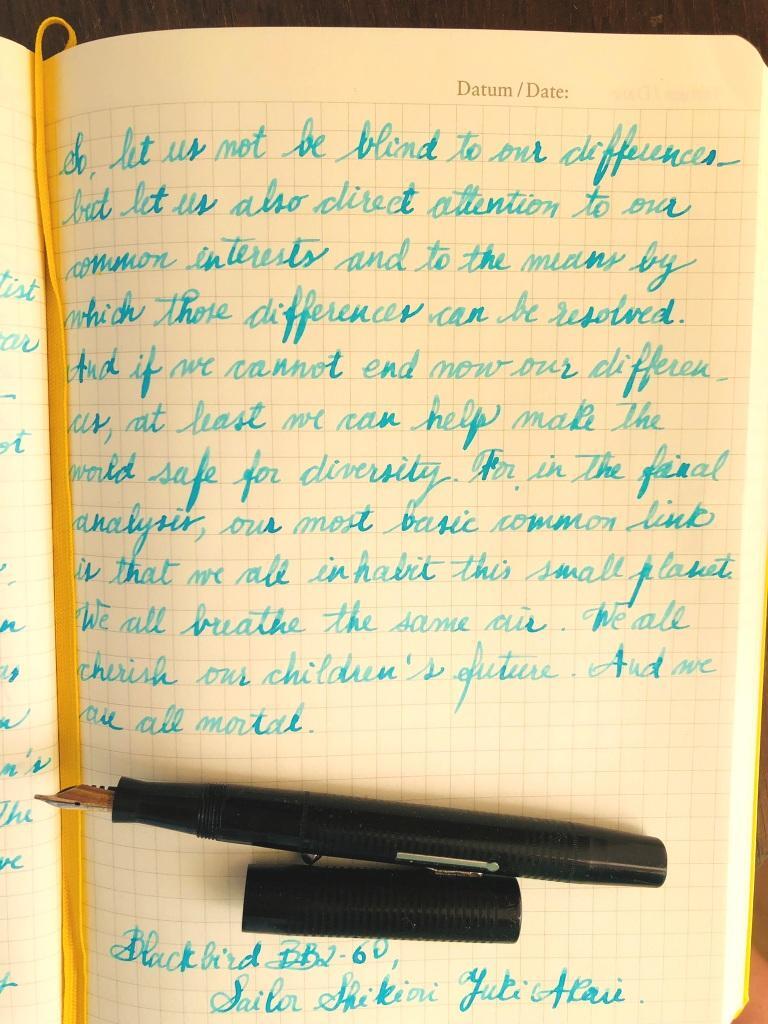 Datum / Date:
So, let us not be blind to our differences –
but let us also direct attention to our
common interests and to the means by
which those differences can be resolved.
And if we cannot end now our differen-
ces, at least we can help make the
world safe for diversity. For, in the final
analysis, our most basic common link
is that we all inhabit this small planet.
We all breathe the same air. We all
cherish our children's future. And we
are all mortal.
Blackbird BB2-60,
Sailor Shikiori Yuki Akari.
tist
ar
-
ot
n
as
n
n's
The
ve